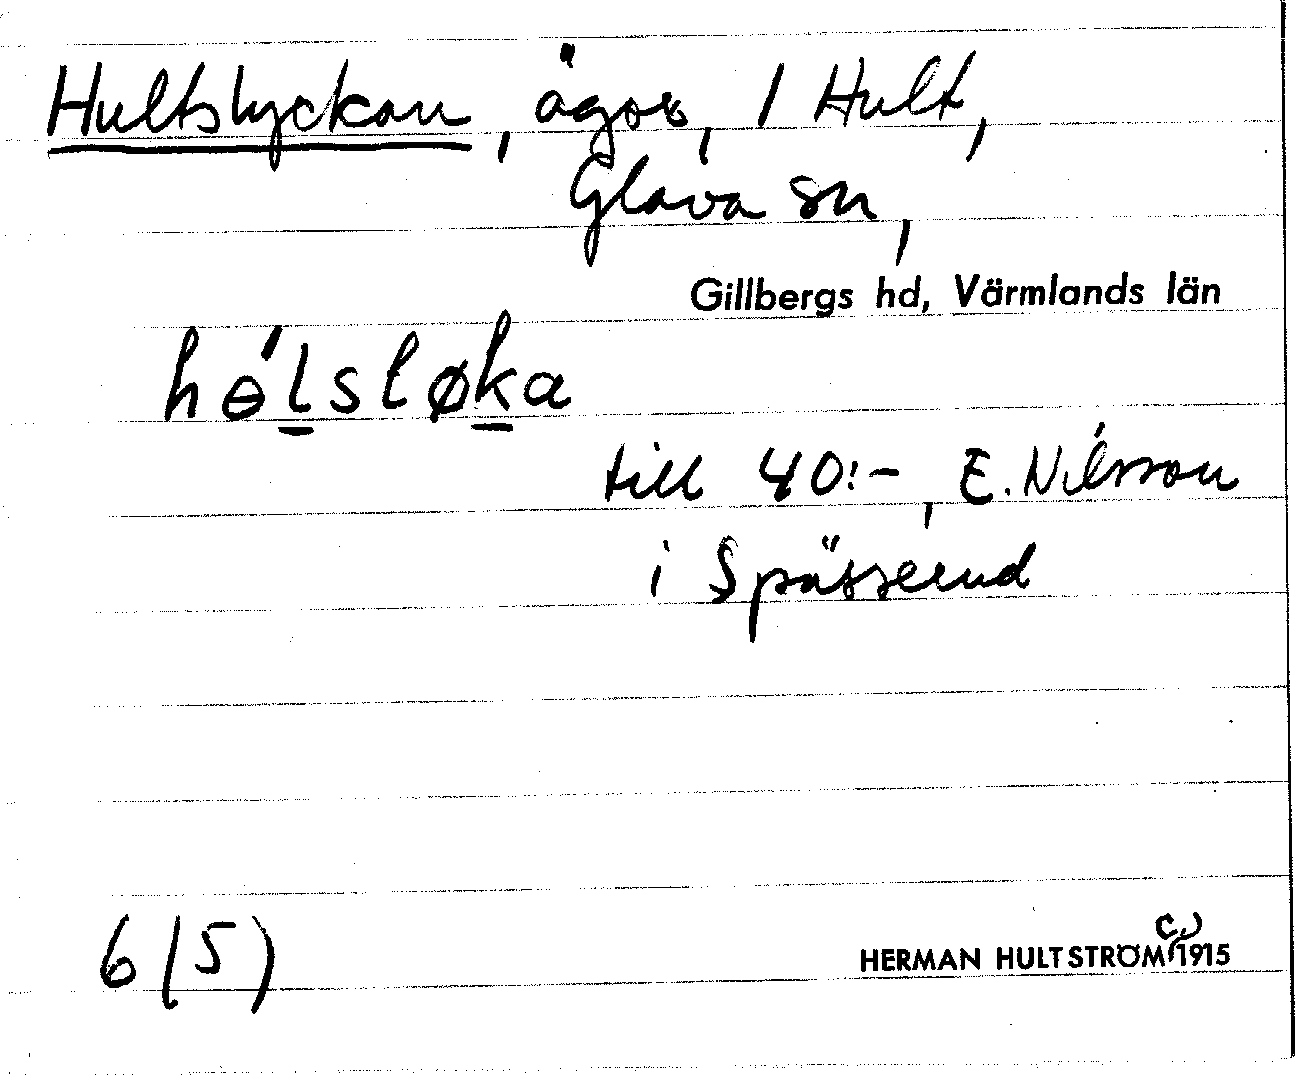 Hultslyckan, ägor, 1 Hult,
Glava sn,
Gillbergs hd, Värmlands län
hɵ́lsløka
till 40:-, E. Nilsson
i Spässerud
6 (5)
HERMAN HULTSTRÖM c) 1915